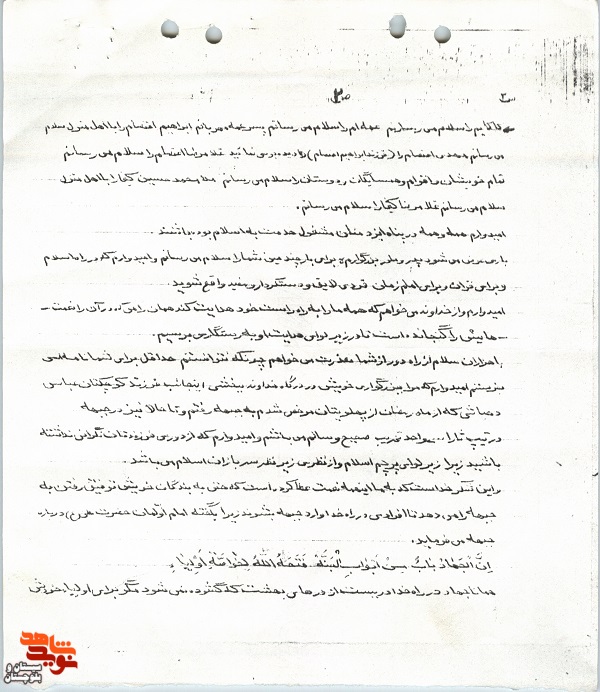 ۳
ص۲
را سلام می رسانم عمه ام را سلام می رسانم پسر عمه مهربانم ابراهیم اعتصام را با اهل منزل سلام
می رسانم مهدی اعتصام را (فرزند ابراهیم اعتصام) را دیده بوسی نمائید غلامرضا اعتصام را سلام می رسانم
تمام خویشان و اقوام و همسایگان و دوستان را سلام می رسانم محمد حسین کیخا را با اهل منزل
سلام می رسانم غلامرضا کیخا را سلام می رسانم.
امیدوارم همه و همه در پناه ایزد منان مشغول خدمت به اسلام بوده باشند.
باری عرض می شود پدر و مادر بزرگوارم برای بار چندمین شما را سلام می رسانم و امیدوارم که در راه اسلام
و برای قرآن و برای امام زمان فردی لایق و دستکردار و مفید واقع شوید
امیدوارم و از خداوند می خواهم که همه ما را به راه راست خود هدایت کند همان راهی که در آن را نعمت
هایش را گنجانده است تا در زیر لوای هدایت او به رستگاری برسیم.
با هزاران سلام از راه دور از شما معذرت می خواهم چونکه نتوانستم حداقل برای شما نامه ای
بنویسم امیدوارم که مرا به بزرگواری خویش و درگاه خداوند ببخشی اینجانب فرزند کوچکتان عباس
دهمانی که از ماه رمضان از پهلویتان مرخص شدم به جبهه رفتم و تا حالا نیز در جبهه
در تیپ ثارا... واحد تخریب صحیح و سالم می باشم و امیدوارم که از دوری فرزندتان نگرانی نداشته
باشید زیرا زیر لوای پرچم اسلام و از نظری زیر نظر سربازان اسلام می باشد.
و این شکر خداست که به ما اینهمه نعمت عطا کرده است که حتی به بندگان خویش توفیق رفتن به
جبهه را می دهد تا افرادی در راه خدا وارد جبهه بشوند زیرا بگفته امام اولمان حضرت علی (ع) درباره
جبهه می فرماید.
اِنَّ الجَهادَ بابٌ مِنْ اَبوابِ الجَنَّة فَتَحَهُ اللهُ لِخاصَّةِ اَولیائِه
همانا جهاد در راه خدا دریست از درهای بهشت که گشوده نمی شود مگر برای اولیاء خویش
شاهد
نوید
سیستان و
بلوچستان